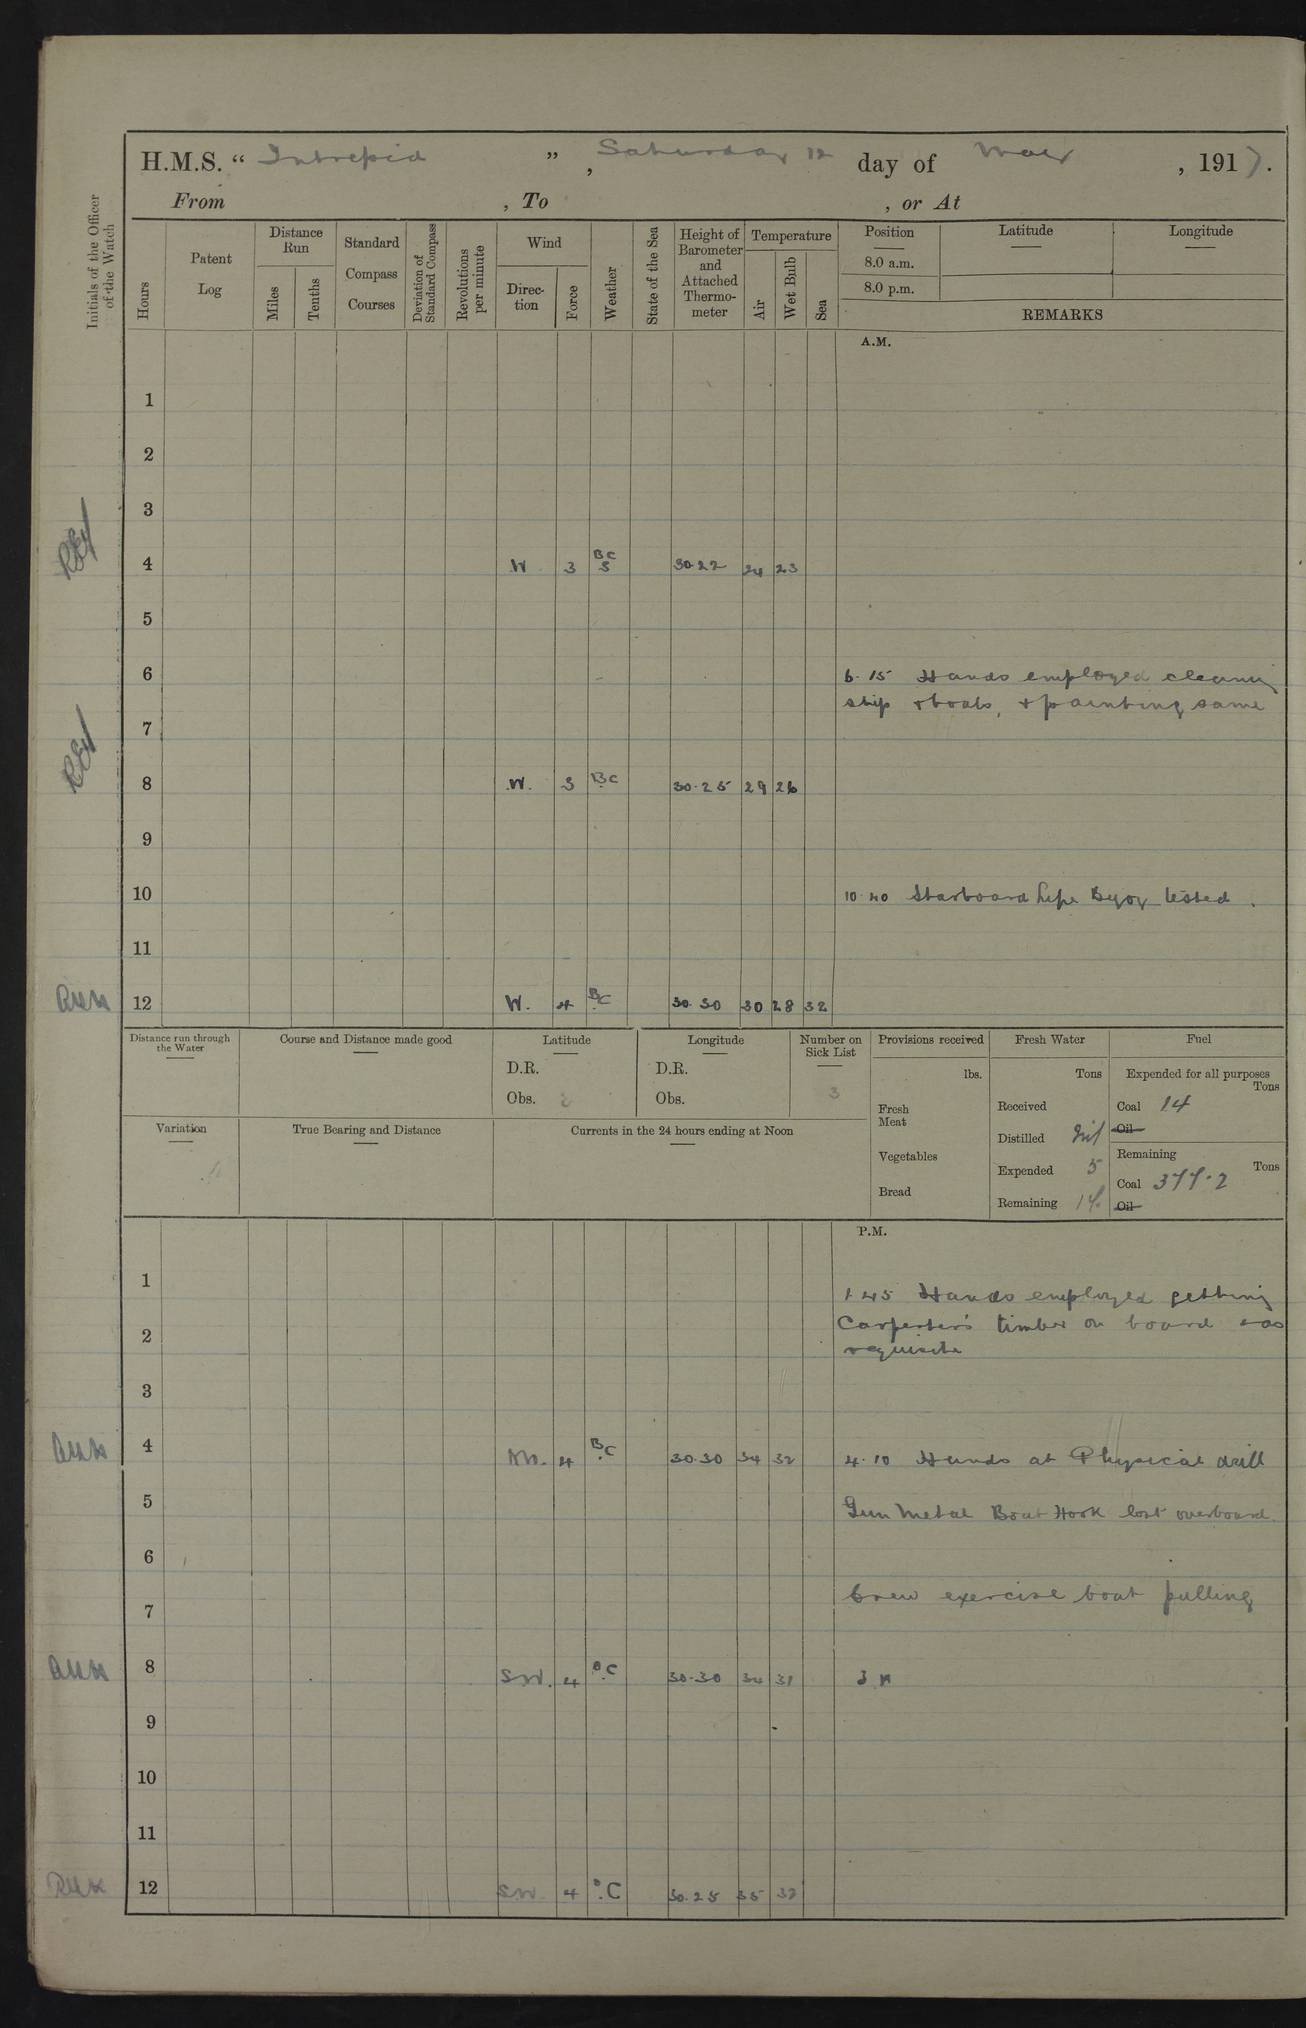 H.M.S. “ Intrepid ”, Saturday 12 day of May , 1917.
From , To , or At
Initials of the Officer of the Watch
Hours
Patent Log
Distance Run
Miles
Tenths
Standard Compass Courses
Deviation of Standard Compass
Revolutions per minute
Wind
Direc-tion
Force
Weather
State of the Sea
Height of Barometer and Attached Thermo-meter
Temperature
Air
Wet Bulb
Sea
Position
8.0 a.m.
8.0 p.m.
Latitude
Longitude
REMARKS
A.M.
1
2
3
4 W 3 BC S 30.22 24 23
5
6 6.15 Hands employed cleaning
ship & boats, & painting same
7
8 W. 3 BC 30.25 29 26
9
10 10.40 Starboard Life Buoy tested.
11
12 W. 4 BC 30.30 30 28 32
Distance run through the Water
Course and Distance made good
Latitude
D.R.
Obs.
Longitude
D.R.
Obs.
Number on Sick List
3
Provisions received
lbs.
Fresh Meat
Vegetables
Bread
Fresh Water
Tons
Received
Distilled Nil
Expended 5
Remaining
Fuel
Expended for all purposes
Tons
Coal 14
Oil
Remaining
Tons
Coal 377.2
Oil
Variation
True Bearing and Distance
Currents in the 24 hours ending at Noon
P.M.
1 1.45 Hands employed getting
2 Carpenter's timber on board & as
requisite
3
4 4 BC 30.30 34 32 4.10 Hands at Physical drill
5 Gun Metal Boat Hook lost overboard.
6
7 Crew exercise boat pulling
8 SW. 4 C 30.30 34 31
9
10
11
12 SW. 4 C 30.25 35 32